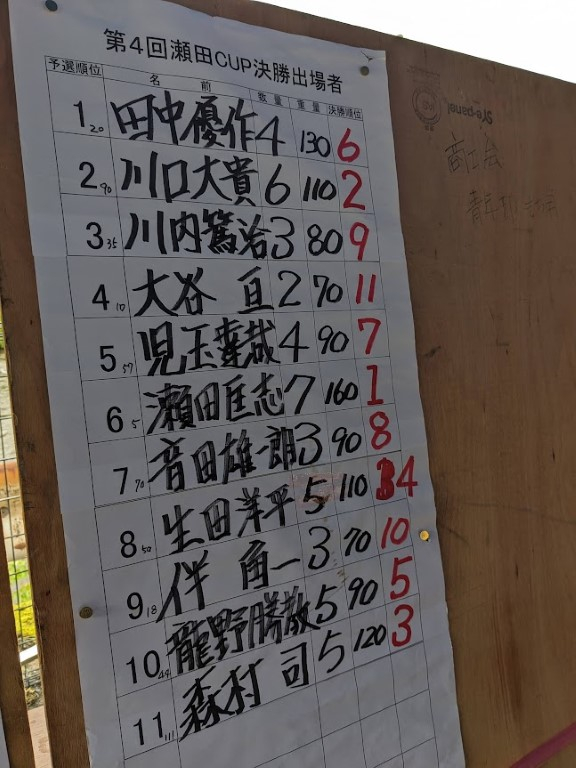 第4回瀬田CUP決勝出場者
予選順位 名前 数量 重量 決勝順位
1 20 田中優作 4 130 6
2 90 川口大貴 6 110 2
3 35 川内篤治 3 80 9
4 10 大谷亘 2 70 11
5 57 児玉達哉 4 90 7
6 5 瀬田匡志 7 160 1
7 70 音田雄一朗 3 90 8
8 50 生田洋平 5 110 4
9 18 伴 一 3 70 10
10 44 龍野勝敏 5 90 5
11 111 森村司 5 120 3
商工会